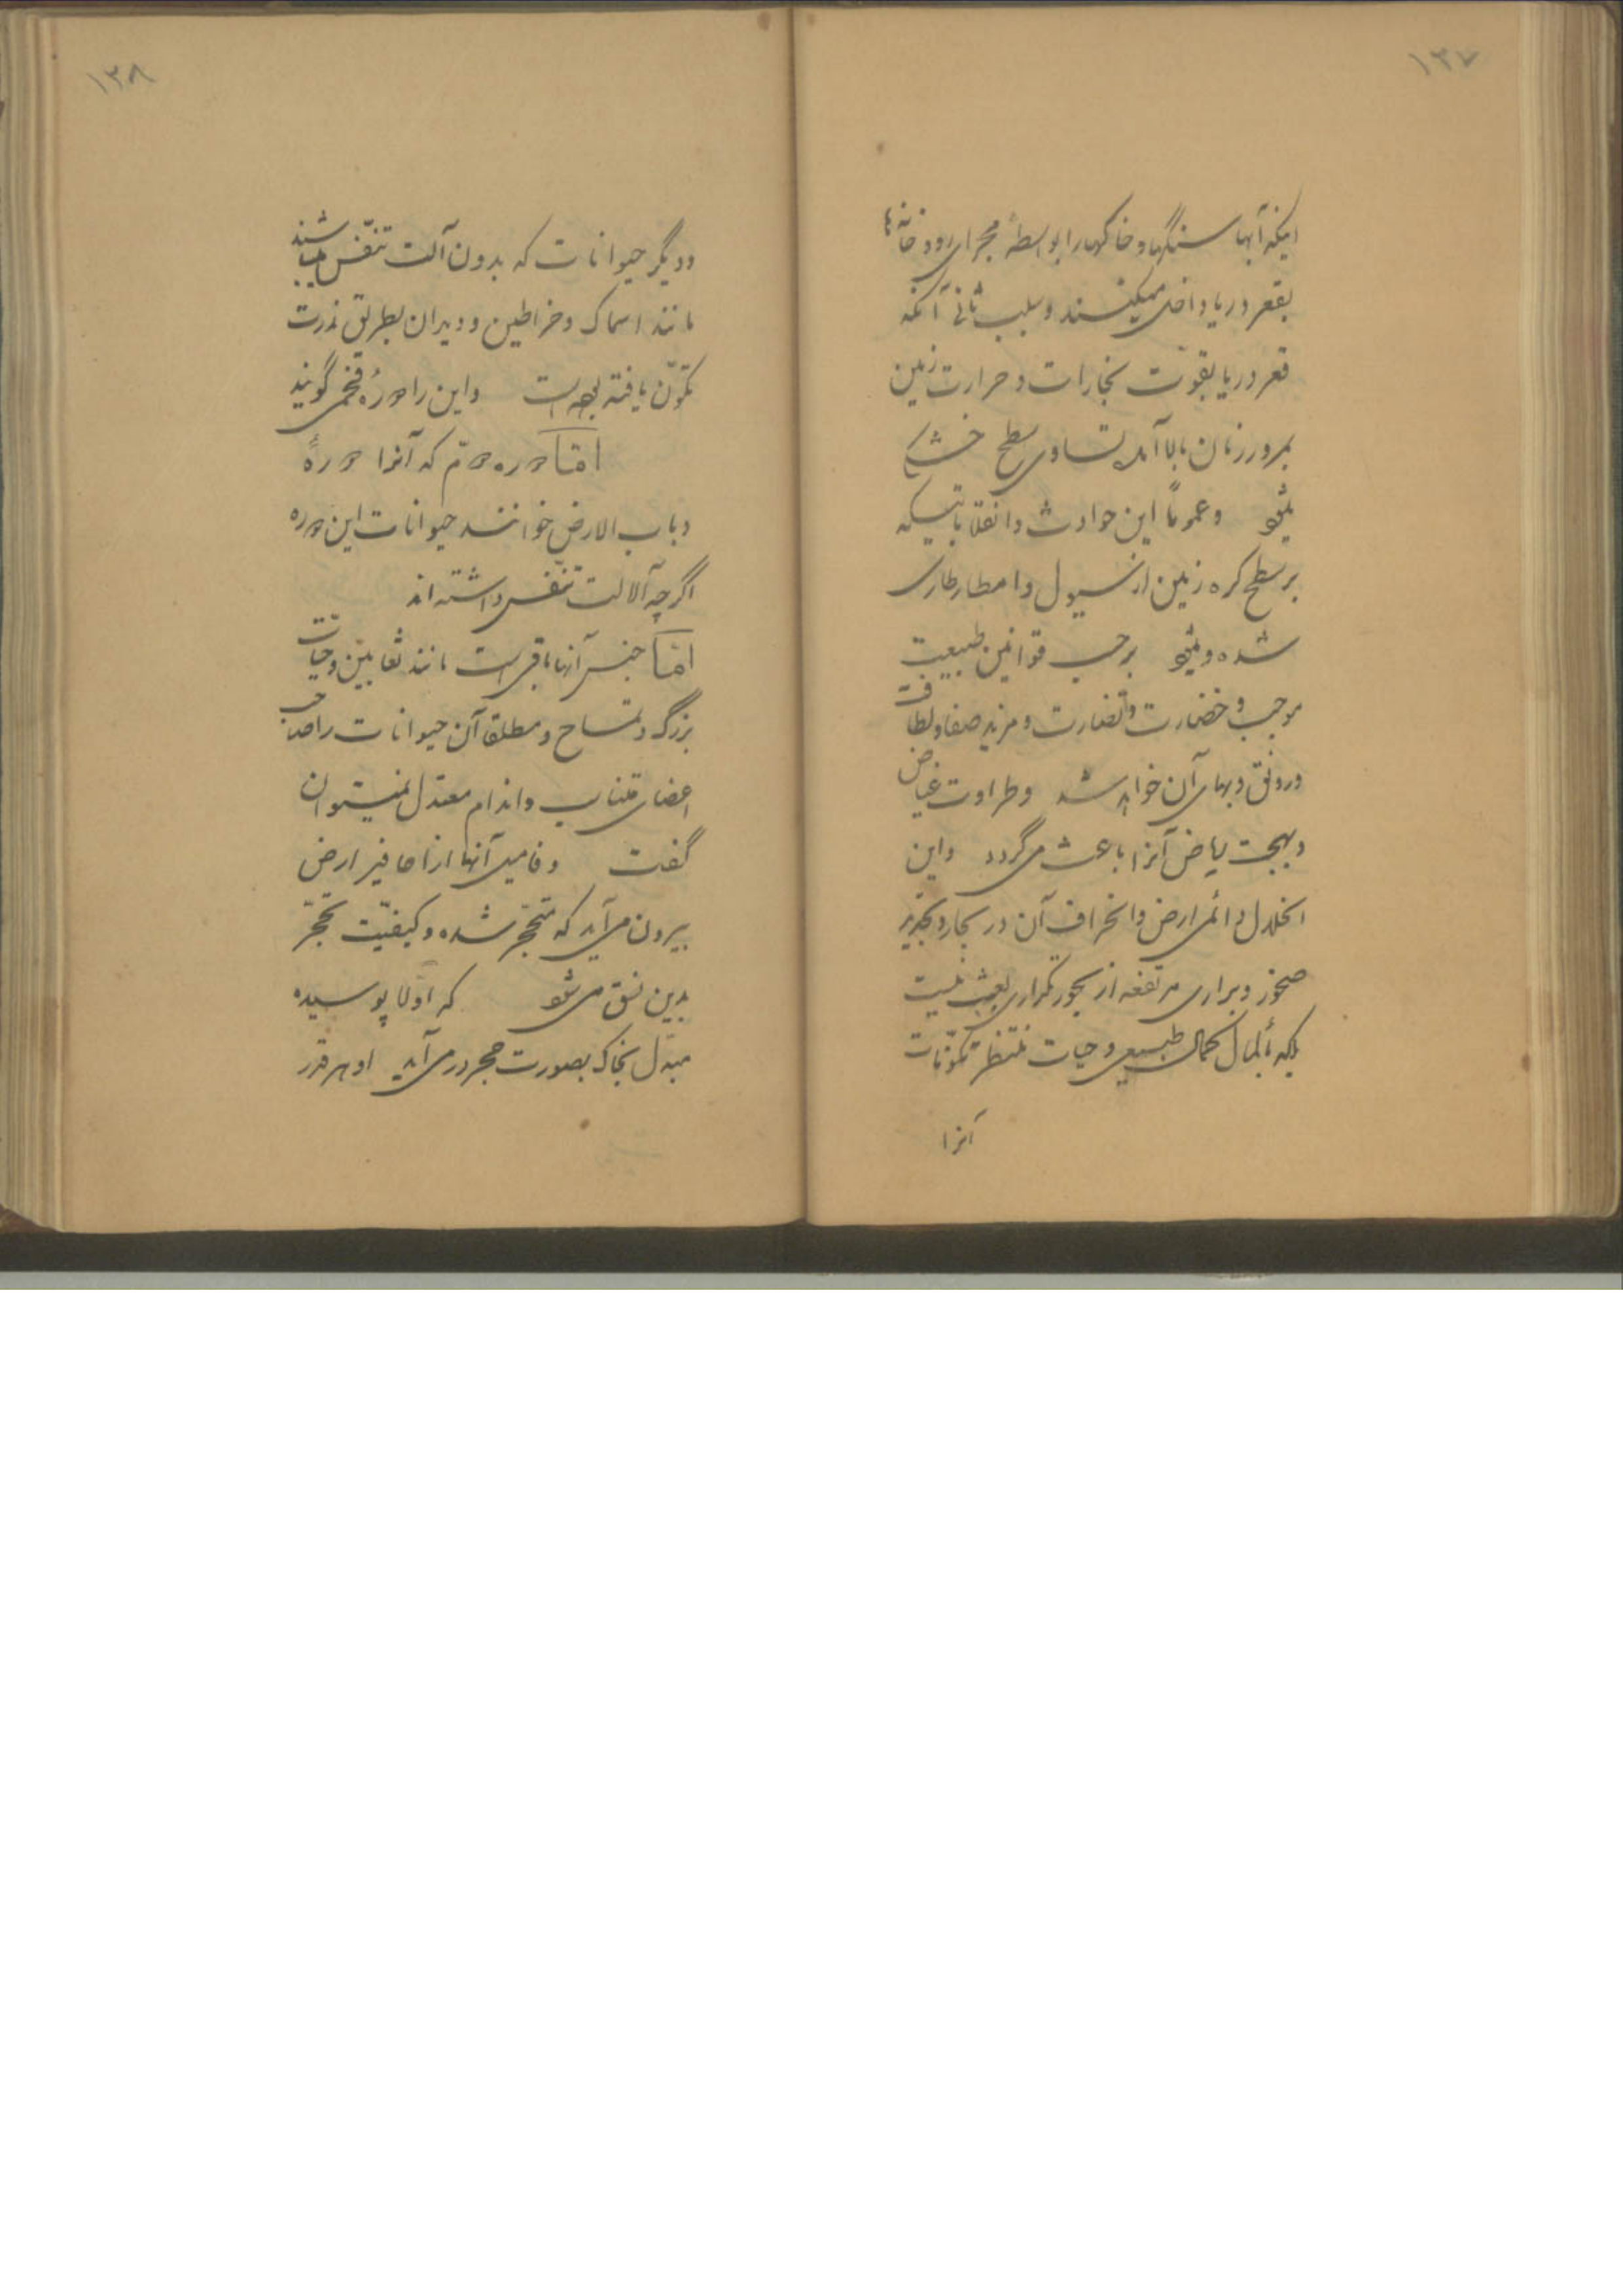 ۱۳۷
اینکه آبها سنگها و خاکها را بواسطهٔ مجرای رودخانه‌ها
بقعر دریا داخل میکنند و سبب ثانی آنکه
قعر دریا بقوت بخارات و حرارت زمین
بمرور زمان بالا آمده تساوی سطح خشکی
میشود وعموماً این حوادث و انقلاباتیکه
بر سطح کره زمین از سیول و امطار طاری
شده و میشود برحسب قوانین طبیعیت
موجب وخضارت و نضارت و مزید صفا و لطافت
و رونق و بهای آن خواهد شد و طراوت غیاض
و بهجت ریاض آنرا باعث می گردد و این
انحلال دائمی ارض و انحراف آن در بحار و تجدید
صخور و براری مرتفعه از بحور تکراری بعبث نیست
بلکه کمال طبیعی و حیات منتظر تکوّنات
آنرا
۱۳۸
و دیگر حیوانات که بدون آلت تنفّس میباشند
مانند اسماک و خراطین و دیدان بطریق ندرت
تکوّن یافته بوده است و این را دورهٔ فحمی گویند
امّا دوره دوّم که آنرا دورهٔ
دباب الارض خوانند حیوانات این دوره
اگرچه آلات تنفّس داشته اند
امّا جنس آنها باقی است مانند ثعابین و حیّات
بزرگ و تمساح و مطلقا آن حیوانات را صاحب
اعضای متناسب و اندام معتدل نمیتوان
گفت و فامیل آنها از احافیر ارض
بیرون می آید که متحجّر شده و کیفیّت تحجّر
بدین نسق می شود که اولا پوسیده
مبدّل بخاک بصورت حجر در می آید او هر قدر